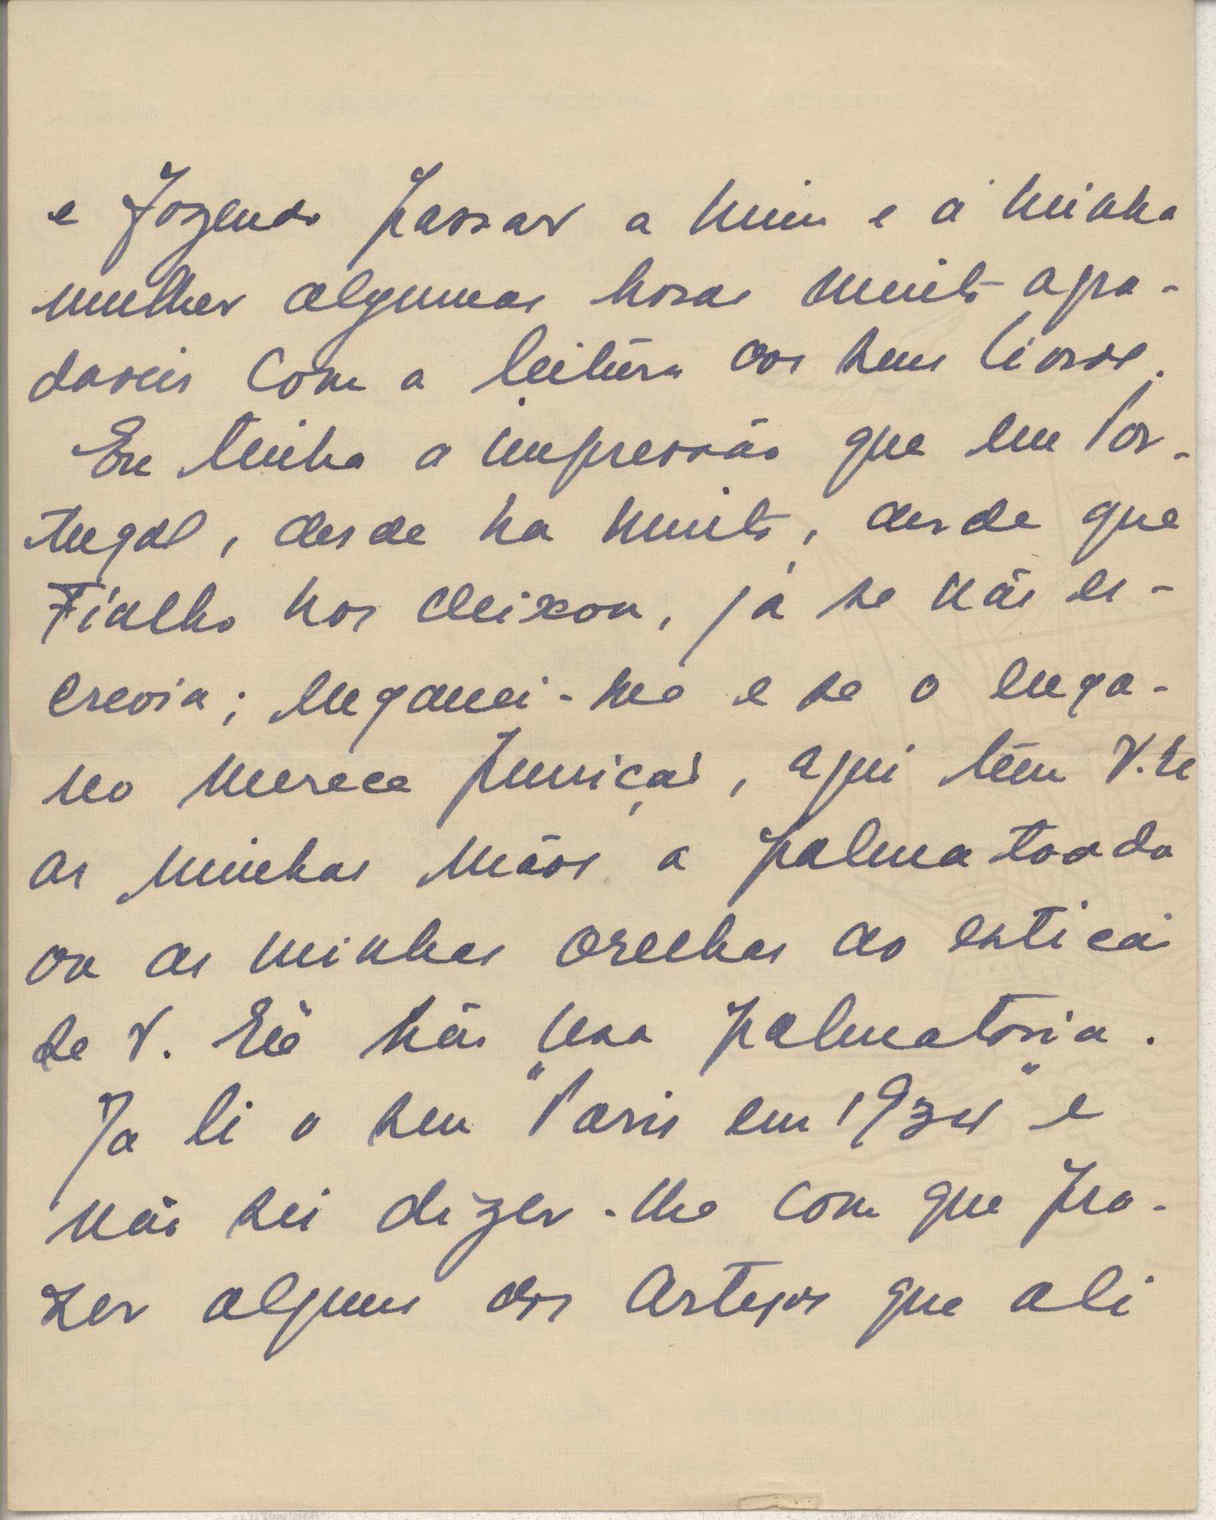 e fazendo passar a mim e á minha
mulher algumas horas muito agra-
daveis com a leitura dos seus livros.
Eu tinha a impressão que em Por-
tugal, desde ha muito, desde que
Fialho nos deixou, já se não es-
crevia; enganei-me e se o enga-
no merece punição, aqui têm V. Ex
as minhas mãos a palmatoada
ou as minhas orelhas ao esticão
se V. Exª não usa palmatoria.
Já li o seu "Paris em 1934" e
não sei dizer-lhe com que pra-
zer alguns dos artigos que ali